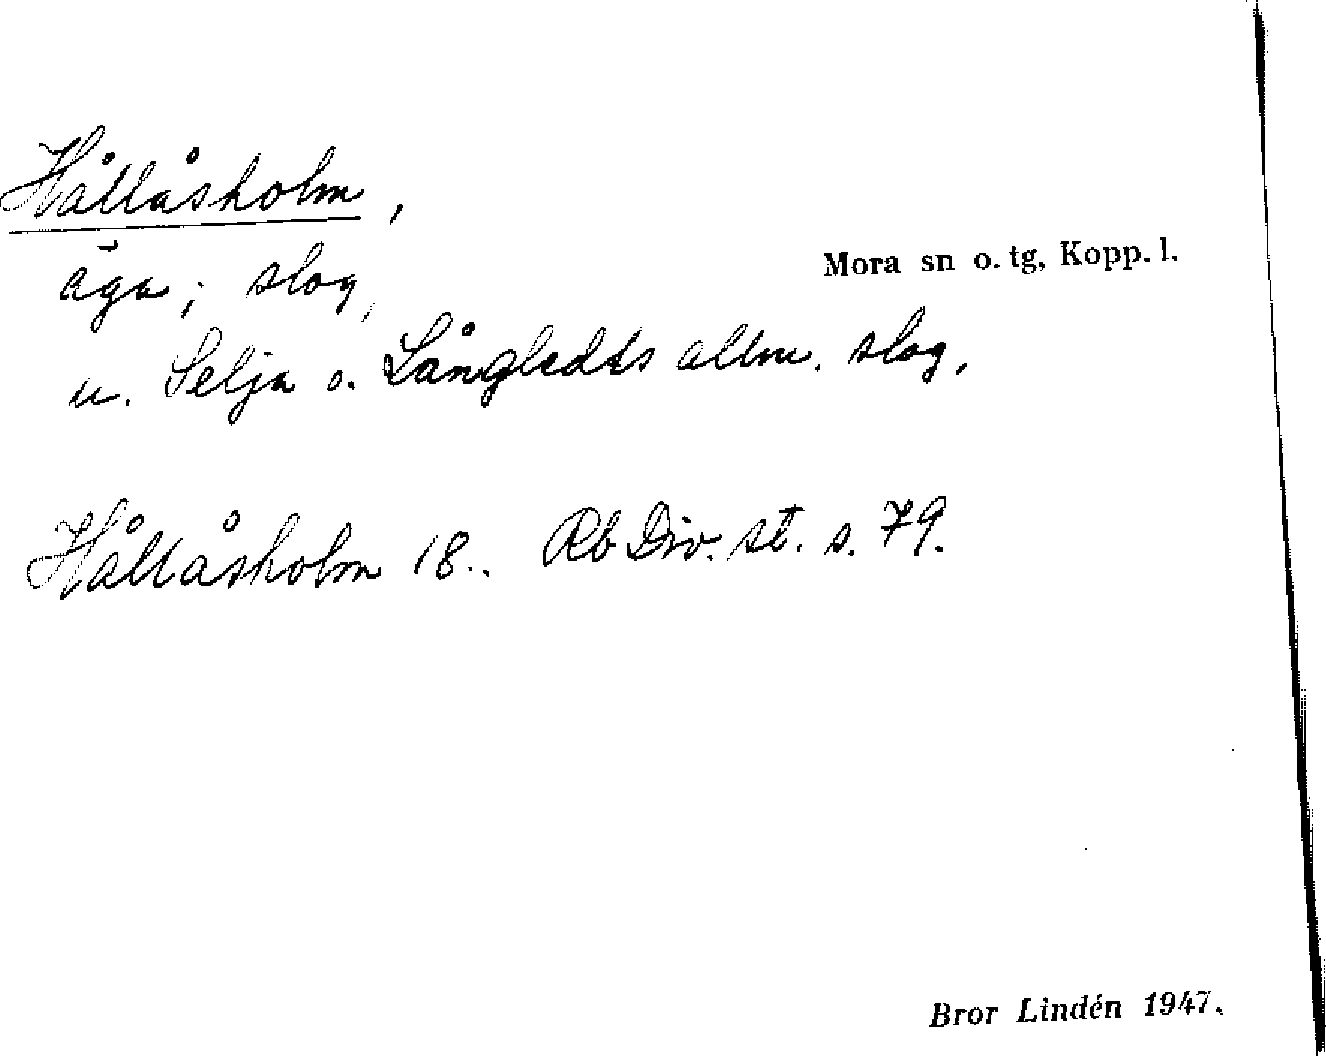 Hållåsholm,
Mora sn o. tg, Kopp. l.
äga; slog,
u. Selja o. Långledts allm. slog.
Hållåsholm 18.. Rb Div. st. s. 79.
Bror Lindén 1947.